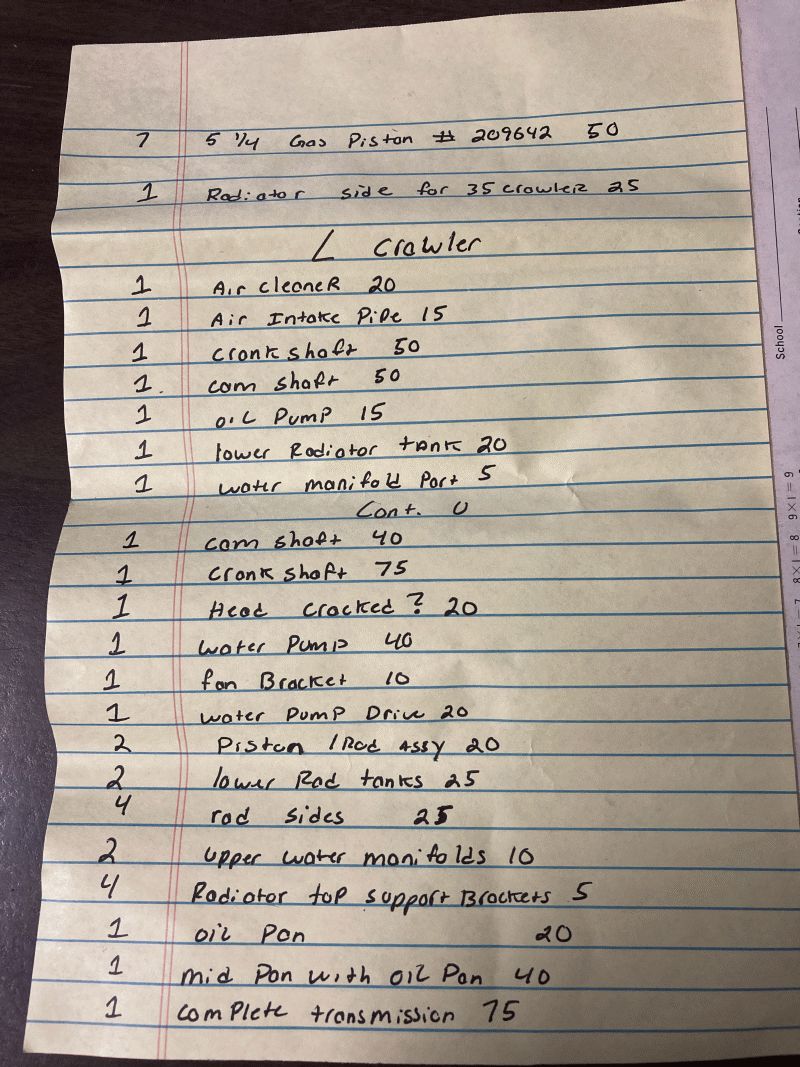 7 5 1/4 Gas Piston # 209642 50
1 Radiator side for 35 crawler 25
L Crawler
1 Air cleaner 20
1 Air Intake Pipe 15
1 crankshaft 50
1. cam shaft 50
1 oil Pump 15
1 lower Radiator tank 20
1 water manifold Part 5
Cont. U
1 cam shaft 40
1 crankshaft 75
1 Head cracked? 20
1 water Pump 40
1 fan Bracket 10
1 water Pump Drive 20
2 Piston / Rod Assy 20
2 lower Rad tanks 25
4 rad sides 25
2 upper water manifolds 10
4 Radiator top support Brackets 5
1 oil Pan 20
1 mid Pan with oil Pan 40
1 complete transmission 75
School
8×1=8 9×1=9